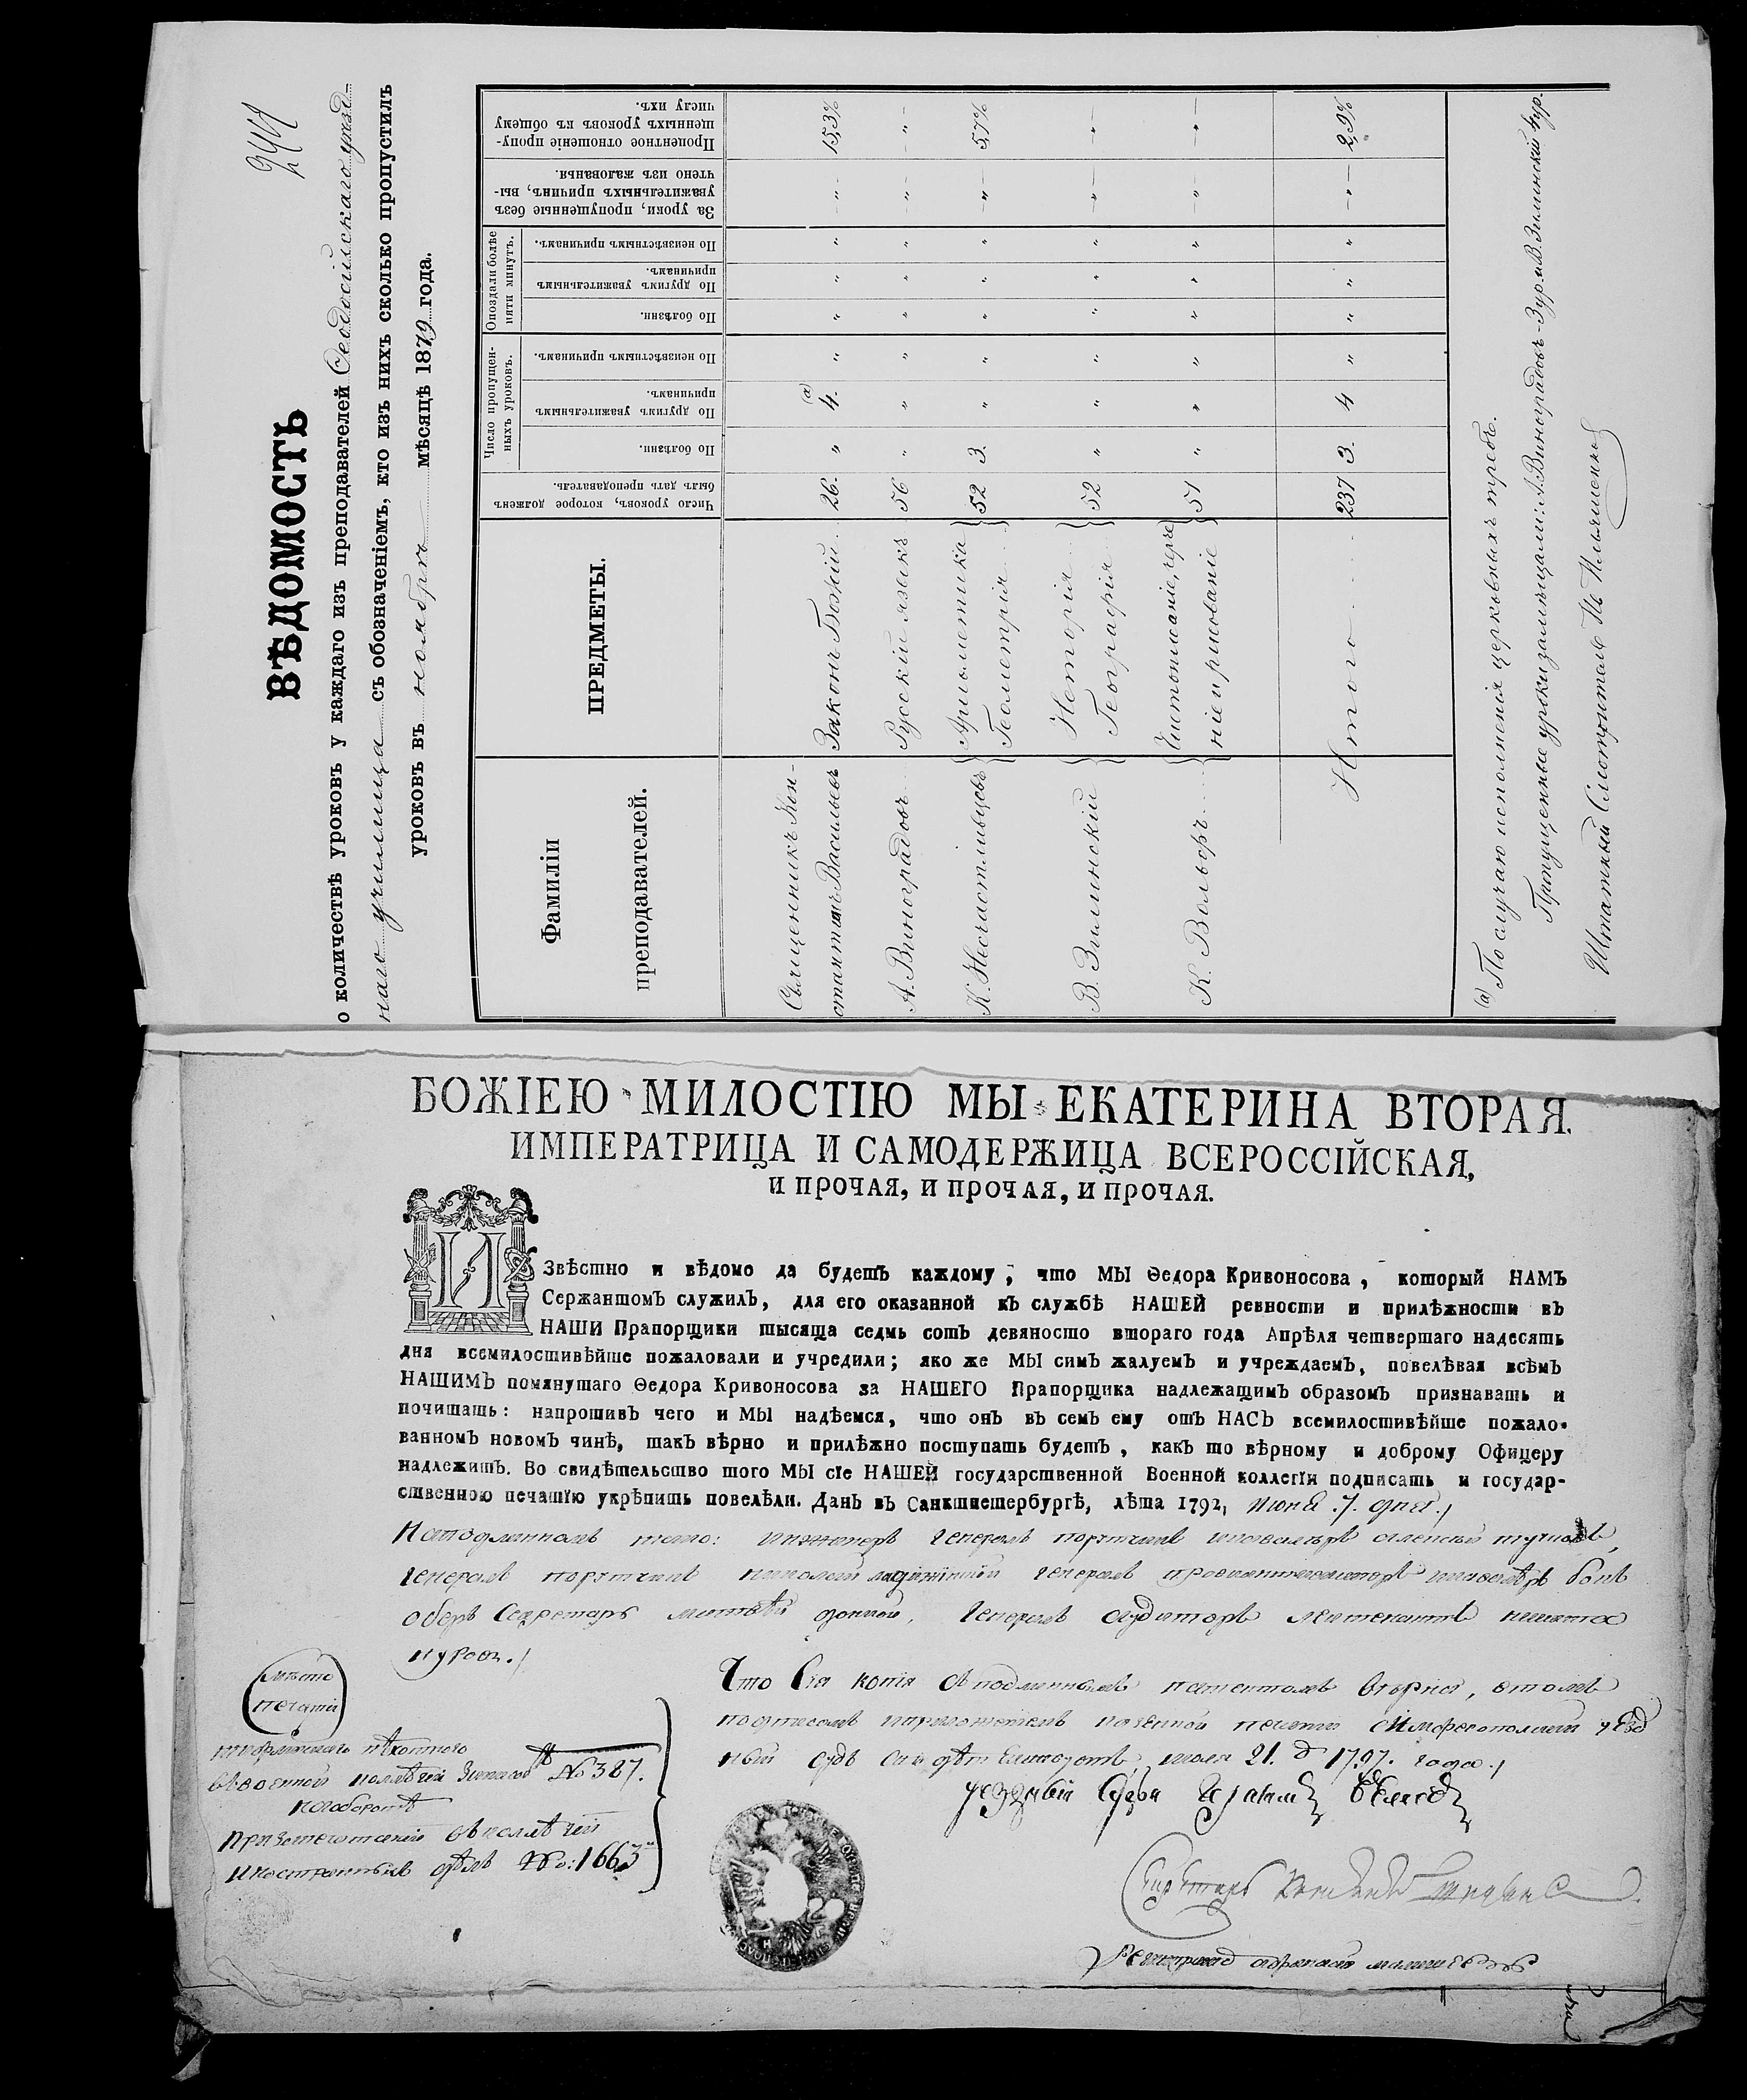 244
ВѢДОМОСТЬ
о количествѣ уроковъ у каждаго изъ преподавателей Ѳеодосійскаго уѣзд-
наго училища съ обозначеніемъ, кто изъ нихъ сколько пропустилъ
уроковъ въ ноябрѣ мѣсяцѣ 1879 года.
Фамиліи преподавателей.
ПРЕДМЕТЫ.
Число уроковъ, которое долженъ былъ дать преподаватель.
Число пропущен-ныхъ уроковъ.
По болѣзни.
По другимъ уважительнымъ причинамъ.
По неизвѣстнымъ причинамъ.
Опоздали болѣе пяти минутъ.
По болѣзни.
По другимъ уважительнымъ причинамъ.
По неизвѣстнымъ причинамъ.
За уроки, пропущенные безъ уважительныхъ причинъ, вы-чтено изъ жалованья.
Процентное отношеніе пропу-щенныхъ уроковъ къ общему числу ихъ.
Священникъ Кон-
стантинъ Васильевъ Законъ Божій 26. " 4.(а) " " " " -"- 15,3%
А. Виноградовъ Русскій языкъ 56 " " " " " " -"- -"-
К. Несчастливцевъ { Ариѳметика
Геометрія } 52 3. " " " " " -"- 5,7%
В. Зилинскій { Исторія
Географія } 52 " " " " " " -"- -"-
К. Вольфъ { Чистописаніе, черче
ніе и рисованіе } 51 " " " " " " -"- -"-
Итого 237 3. 4 " " " " -"- 2,9%
(а) По случаю исполненія церковныхъ требъ.
Пропущенные уроки замѣщали: А. Виноградовъ - 3 ур. и В. Зилинскій 4 ур.
Штатный Смотритель
БОЖІЕЮ МИЛОСТІЮ МЫ ЕКАТЕРИНА ВТОРАЯ.
ИМПЕРАТРИЦА И САМОДЕРЖИЦА ВСЕРОССІЙСКАЯ,
И ПРОЧАЯ, И ПРОЧАЯ, И ПРОЧАЯ.
ИЗвѣстно и вѣдомо да будетъ каждому, что МЫ Ѳедора Кривоносова, который НАМЪ
Сержантомъ служилъ, для его оказанной къ службѣ НАШЕЙ ревности и прилѣжности въ
НАШИ Прапорщики тысяща седмь сотъ девяносто втораго года Апрѣля четвертаго надесять
дня всемилостивѣйше пожаловали и учредили; яко же МЫ симъ жалуемъ и учреждаемъ, повелѣвая всѣмъ
НАШИМЪ помянутаго Ѳедора Кривоносова за НАШЕГО Прапорщика надлежащимъ образомъ признавать и
почитать: напротивъ чего и МЫ надѣемся, что онъ въ семъ ему отъ НАСЪ всемилостивѣйше пожало-
ванномъ новомъ чинѣ, такъ вѣрно и прилѣжно поступать будетъ, какъ то вѣрному и доброму Офицеру
надлежитъ. Во свидѣтельство того МЫ сіе НАШЕЙ государственной Военной коллегіи подписать и государ-
ственною печатію укрѣпить повелѣли. Данъ въ Санктпетербургѣ, лѣта 1792, июня 7. дня.
генералъ порутчикъ
генералъ порутчикъ николай генералъ
оберъ Секретарь генералъ аудиторъ лейтенантъ
мѣсто
печати
пѣхотного
No 387.
No: 1663
Что Сія копія съ подлиннымъ патентомъ вѣрна, въ томъ
подписомъ и приложеніемъ казенной печати симферополский уезд
ный судъ июля 21. д 1797. года.
уездный Судья
Секретарь